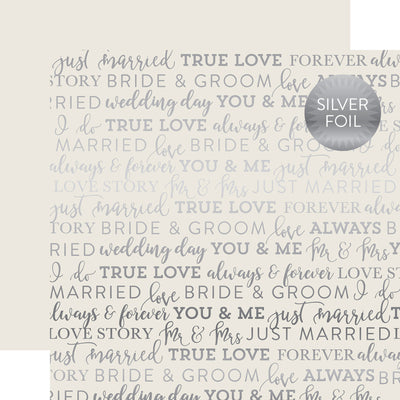 just married TRUE LOVE FOREVER alw
STORY BRIDE & GROOM love ALWAYS
RRIED wedding day YOU & ME
SILVER
FOIL
I do TRUE LOVE always & forever
MARRIED love BRIDE & GROOM
always & forever YOU & ME just married
LOVE STORY Mr & Mrs JUST MARRIED
just married TRUE LOVE FOREVER alwa
STORY BRIDE & GROOM love ALWAYS B
RRIED wedding day YOU & ME Mr & Mrs Y
I do TRUE LOVE always & forever LOVE S
MARRIED love BRIDE & GROOM I do
always & forever YOU & ME just married
LOVE STORY Mr & Mrs JUST MARRIED L
just married TRUE LOVE FOREVER alwa
STORY BRIDE & GROOM love ALWAYS B
RRIED wedding day YOU & ME Mr & Mrs Y